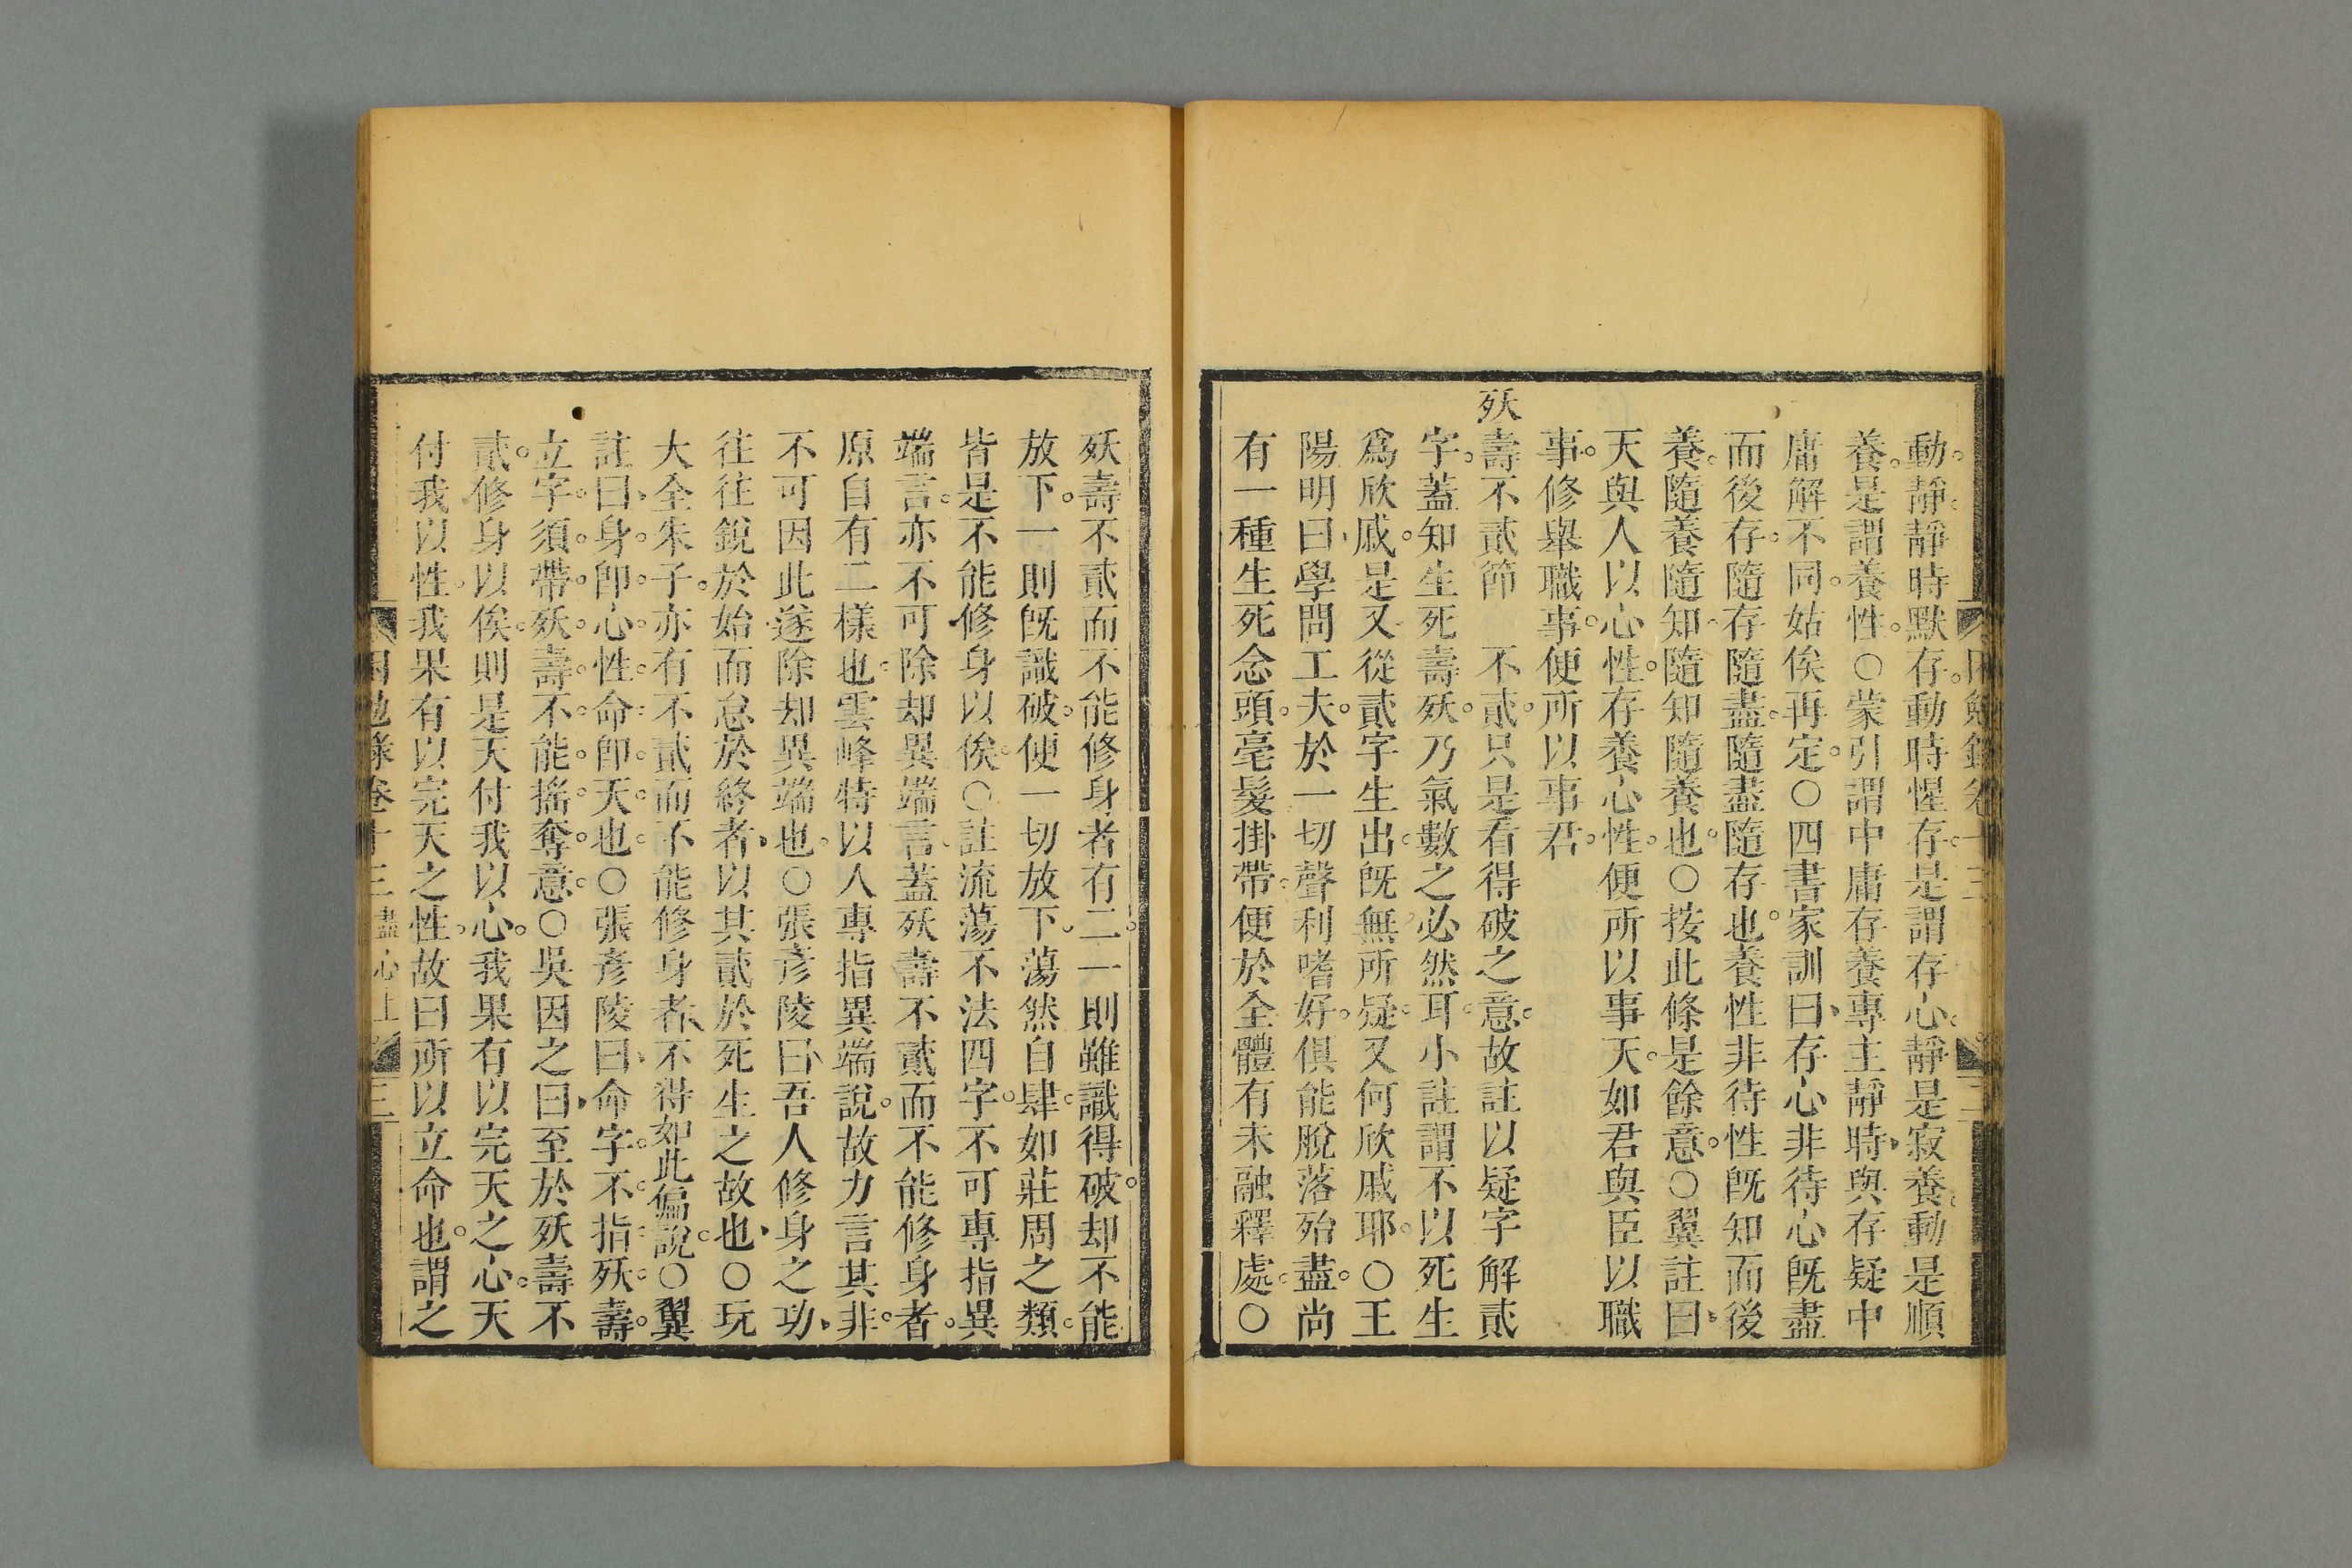 動靜靜時默存動時惺存是謂存心靜是寂養動是順
養是謂養性○蒙引謂中庸存養專主靜時與存疑中
庸解不同姑俟再定○四書家訓曰存心非待心旣盡
而後存隨存隨盡隨盡隨存也養性非待性旣知而後
養隨養隨知隨知隨養也○按此條是餘意○翼註曰
天與人以心性存養心性便所以事天如君與臣以職
事修舉職事便所以事君
殀壽不貳節　不貳只是看得破之意故註以疑字解貳
字蓋知生死壽殀乃氣數之必然耳小註謂不以死生
爲欣戚是又從貳字生出旣無所疑又何欣戚耶○王
陽明曰學問工夫於一切聲利嗜好俱能脫落殆盡尚
有一種生死念頭毫髮掛帶便於全體有未融釋處○
殀壽不貳而不能修身者有二一則雖識得破却不能
放下一則旣識破便一切放下蕩然自肆如莊周之類
皆是不能修身以俟○註流蕩不法四字不可專指異
端言亦不可除却異端言蓋殀壽不貳而不能修身者
原自有二樣也雲峰特以人專指異端說故力言其非
不可因此遂除却異端也○張彥陵曰吾人修身之功
往往銳於始而怠於終者以其貳於死生之故也○玩
大全朱子亦有不貳而不能修身者不得如此偏說○翼
註曰身卽心性命卽天也○張彥陵曰命字不指殀壽
立字須帶殀壽不能搖奪意○吳因之曰至於殀壽不
貳修身以俟則是天付我以心我果有以完天之心天
付我以性我果有以完天之性故曰所以立命也謂之
困勉錄卷十三 盡心上 三